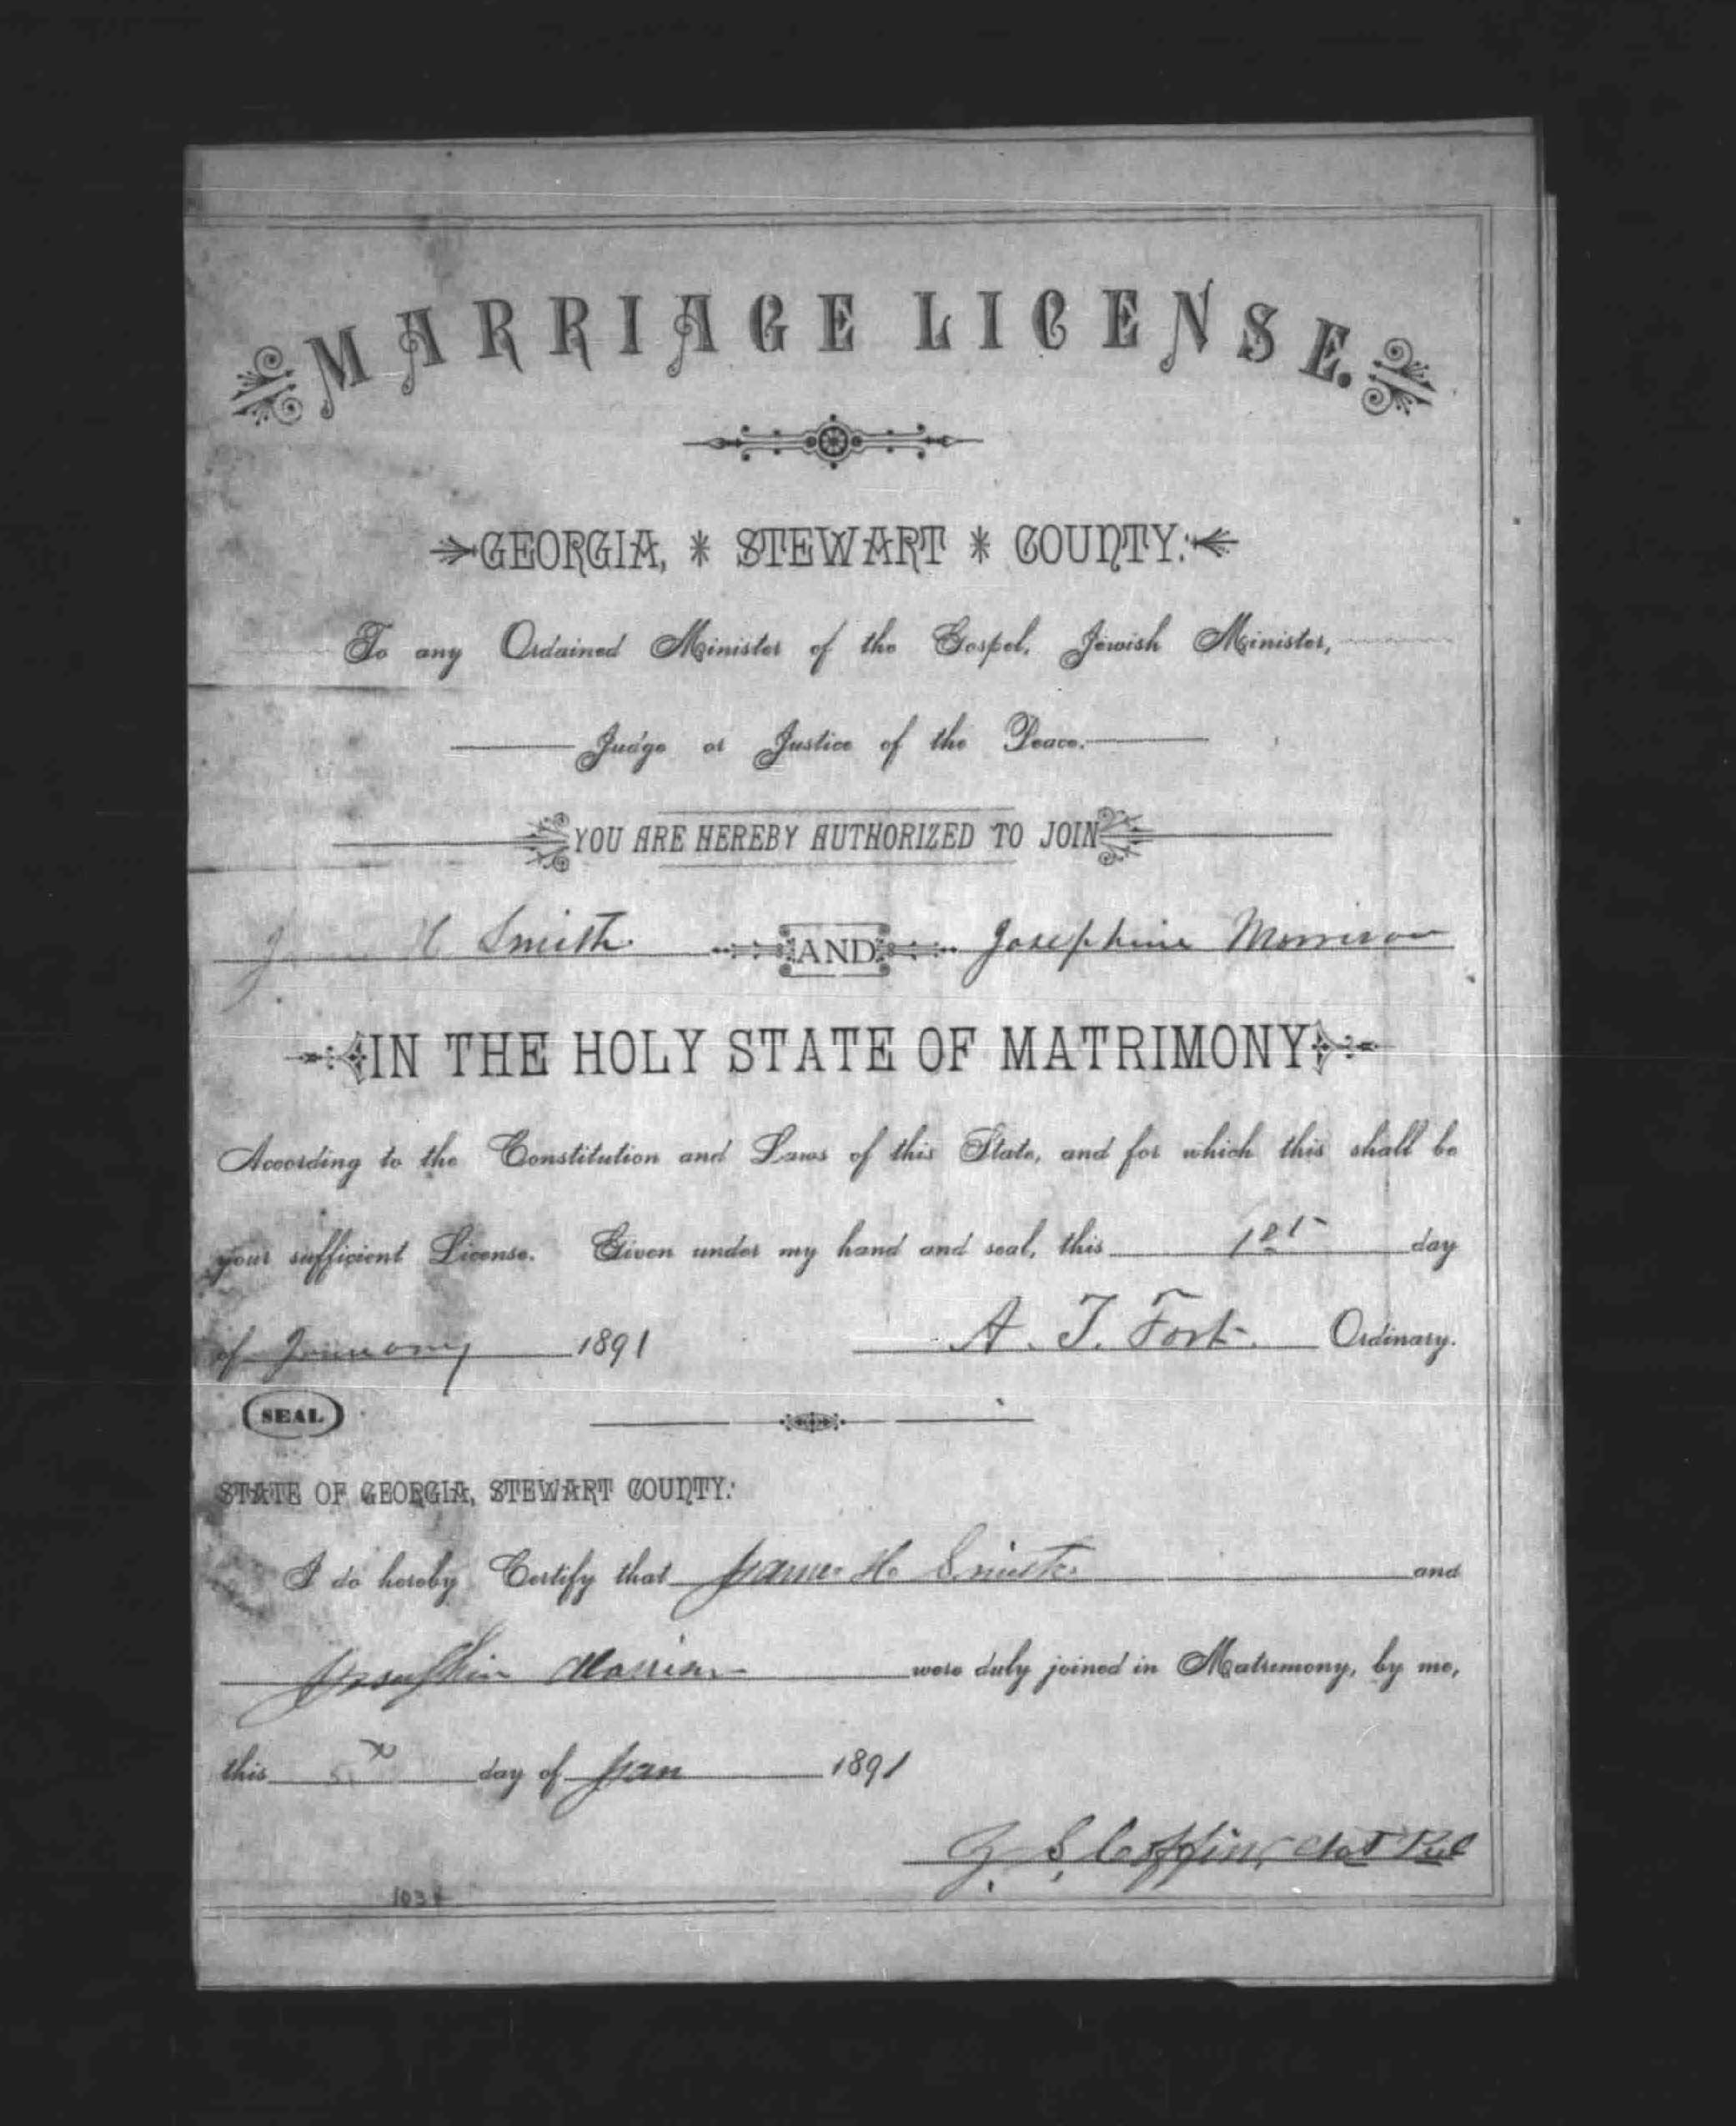 MARRIAGE LICENSE.
GEORGIA, * STEWART * COUNTY:
To any Ordained Minister of the Gospel, Jewish Minister,
Judge or Justice of the Peace.
YOU ARE HEREBY AUTHORIZED TO JOIN
H Smith AND Josephine Morrison
IN THE HOLY STATE OF MATRIMONY
According to the Constitution and Laws of this State, and for which this shall be
your sufficient License. Given under my hand and seal, this 1st day
of January 1891 A. T. Fort. Ordinary.
SEAL
STATE OF GEORGIA, STEWART COUNTY:
I do hereby Certify that James H. Smith and
Josephin were duly joined in Matrimony, by me,
this day of Jan 1891
Not Pub